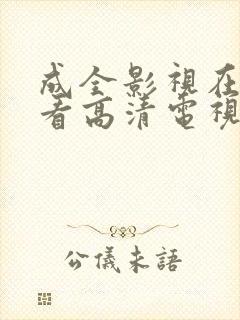 成全影視在
看高清電視
公儀未語